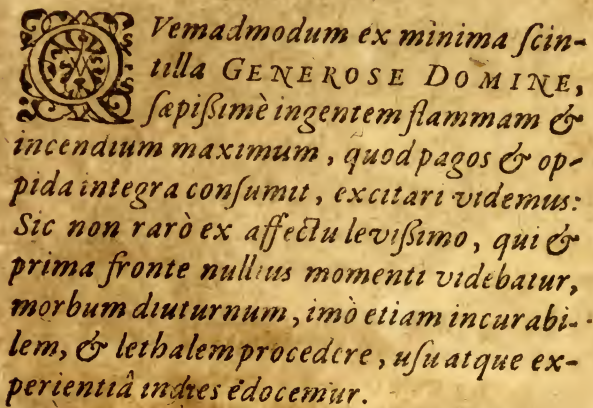 QVemadmodum ex minima ſcin-
tilla GENEROSE DOMINE,
ſæpiſsimè ingentem flammam &
incendium maximum, quod pagos & op-
pida integra conſumit, excitari videmus:
Sic non rarò ex affectu leviſsimo, qui &
prima fronte nullius momenti videbatur,
morbum diuturnum, imò etiam incurabi-
lem, & lethalem procedere, uſu atque ex-
perientiâ indies edocemur.